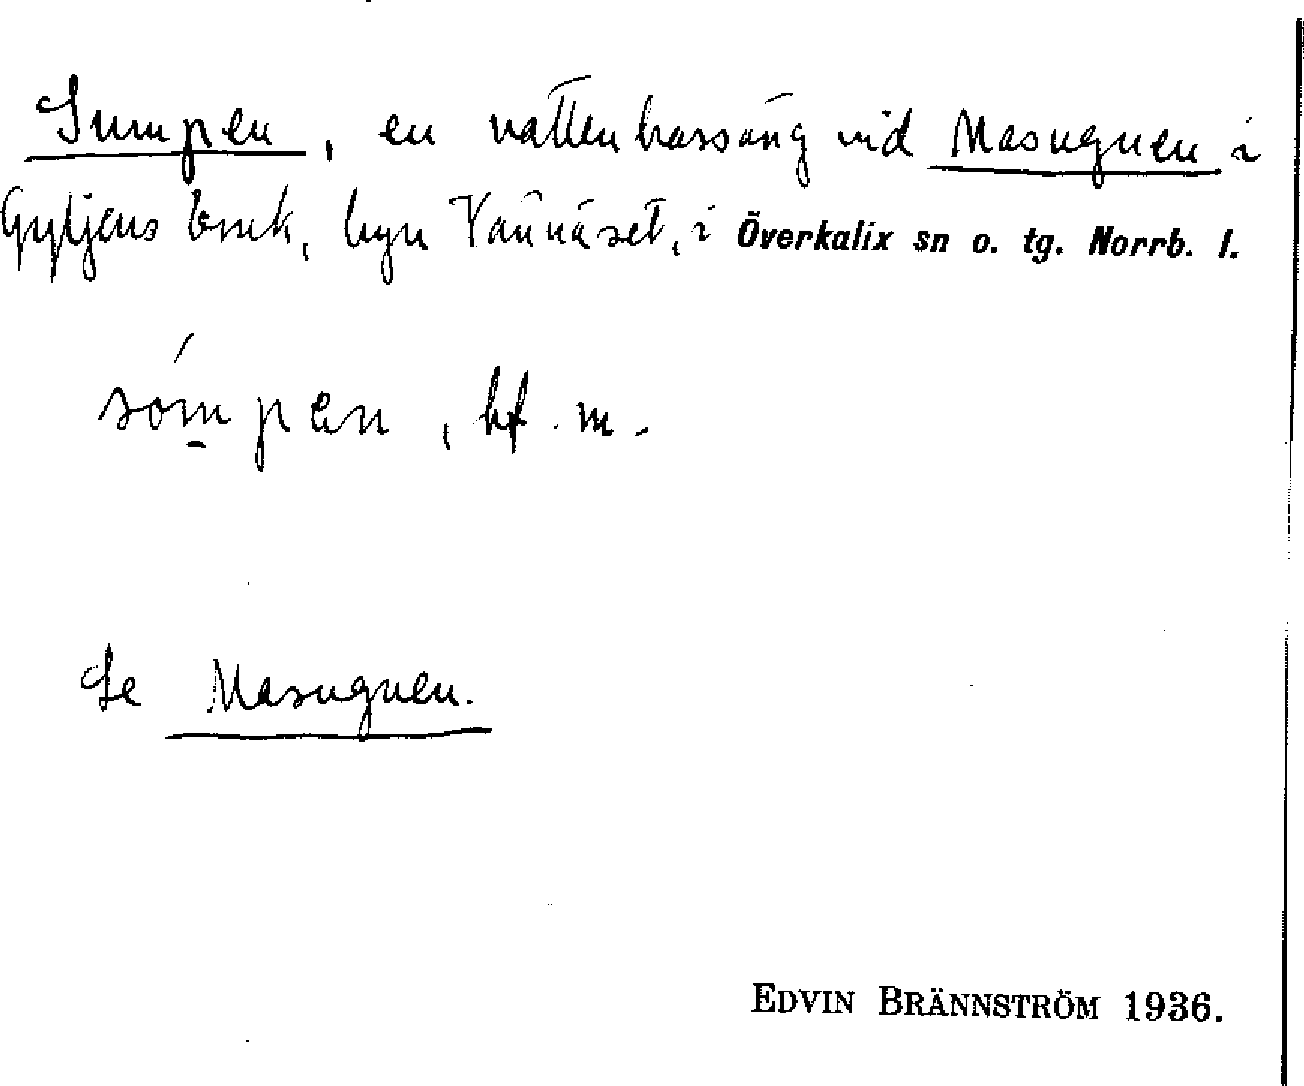 Sumpen, en vattenbassäng vid Masugnen i
Gyljens bruk, byn Vännäset, i Överkalix sn o. tg. Norrb. l.
sómpen, bf. m.
Se Masugnen.
EDVIN BRÄNNSTRÖM 1936.